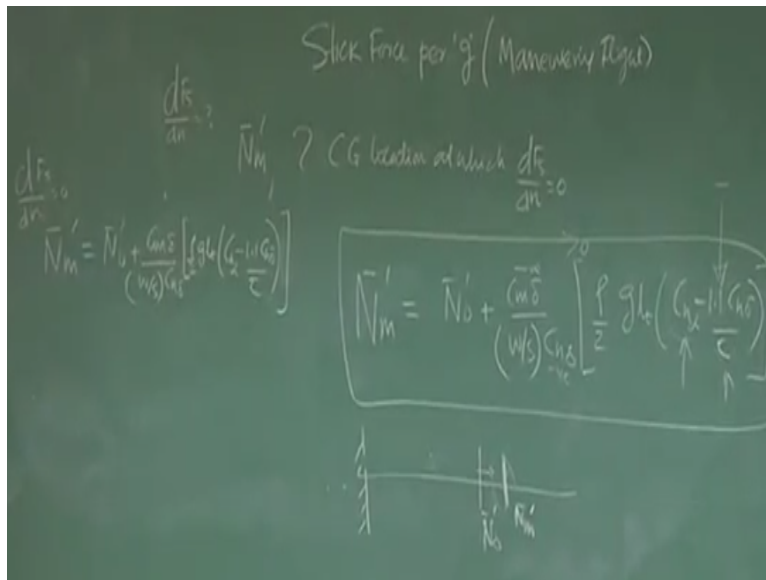 Stick Force per 'g' (Maneuvering Flight)
dFs/dn = ?
N̄m' ? CG location at which dFs/dn = 0
dFs/dn = 0
N̄m' = N̄o' + Cmδ/((W/S)Chδ) [ρ/2 glt (Chα - 1.1Chδ/τ)]
>0
N̄m' = N̄o' + Cmδ/((W/S)Chδ) [ρ/2 glt (Chα - 1.1Chδ/τ)]
-ve
N̄o' N̄m'